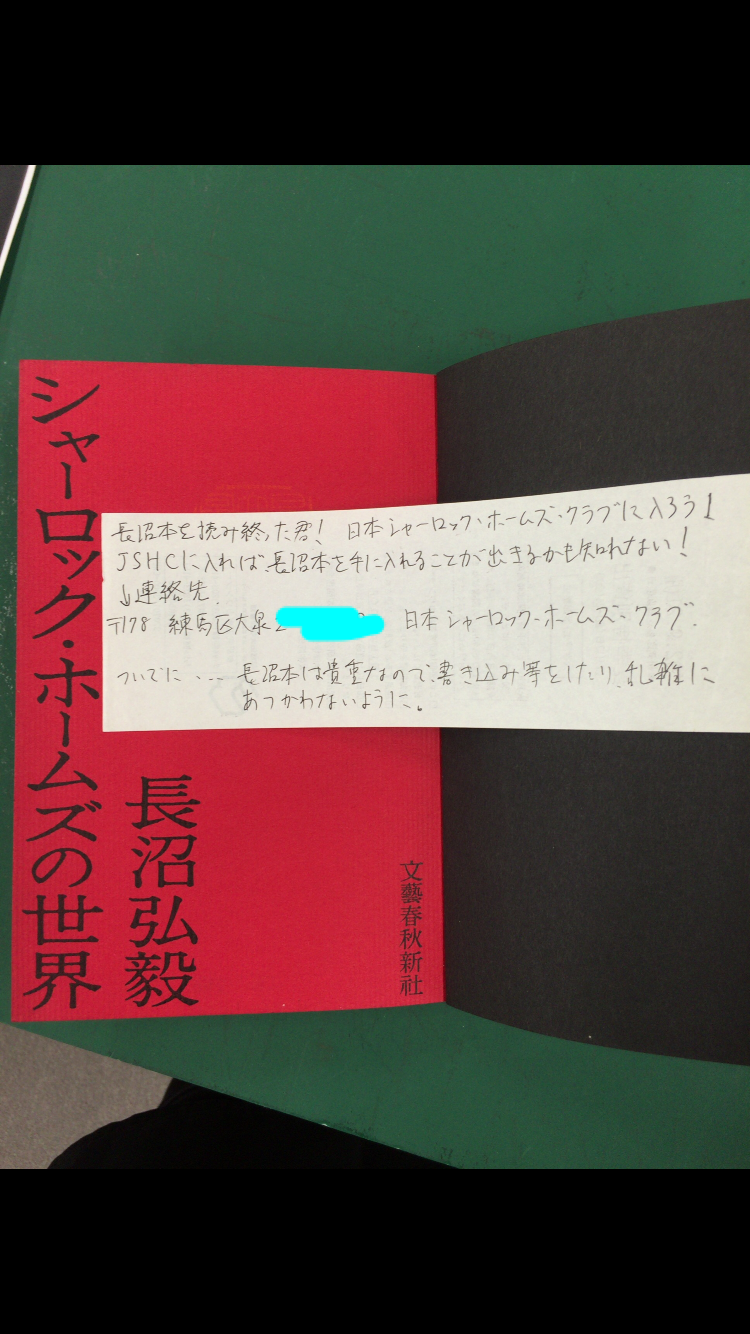 シャーロック・ホームズの世界
長沼弘毅
文藝春秋新社
長沼本を読み終った君! 日本シャーロック・ホームズ・クラブに入ろう!
JSHCに入れば、長沼本を手に入れることが出きるかも知れない!
↓連絡先
〒178 練馬区大泉 日本シャーロック・ホームズ・クラブ.
ついでに・・・ 長沼本は貴重なので、書き込み等をしたり、乱雑に
あつかわないように。